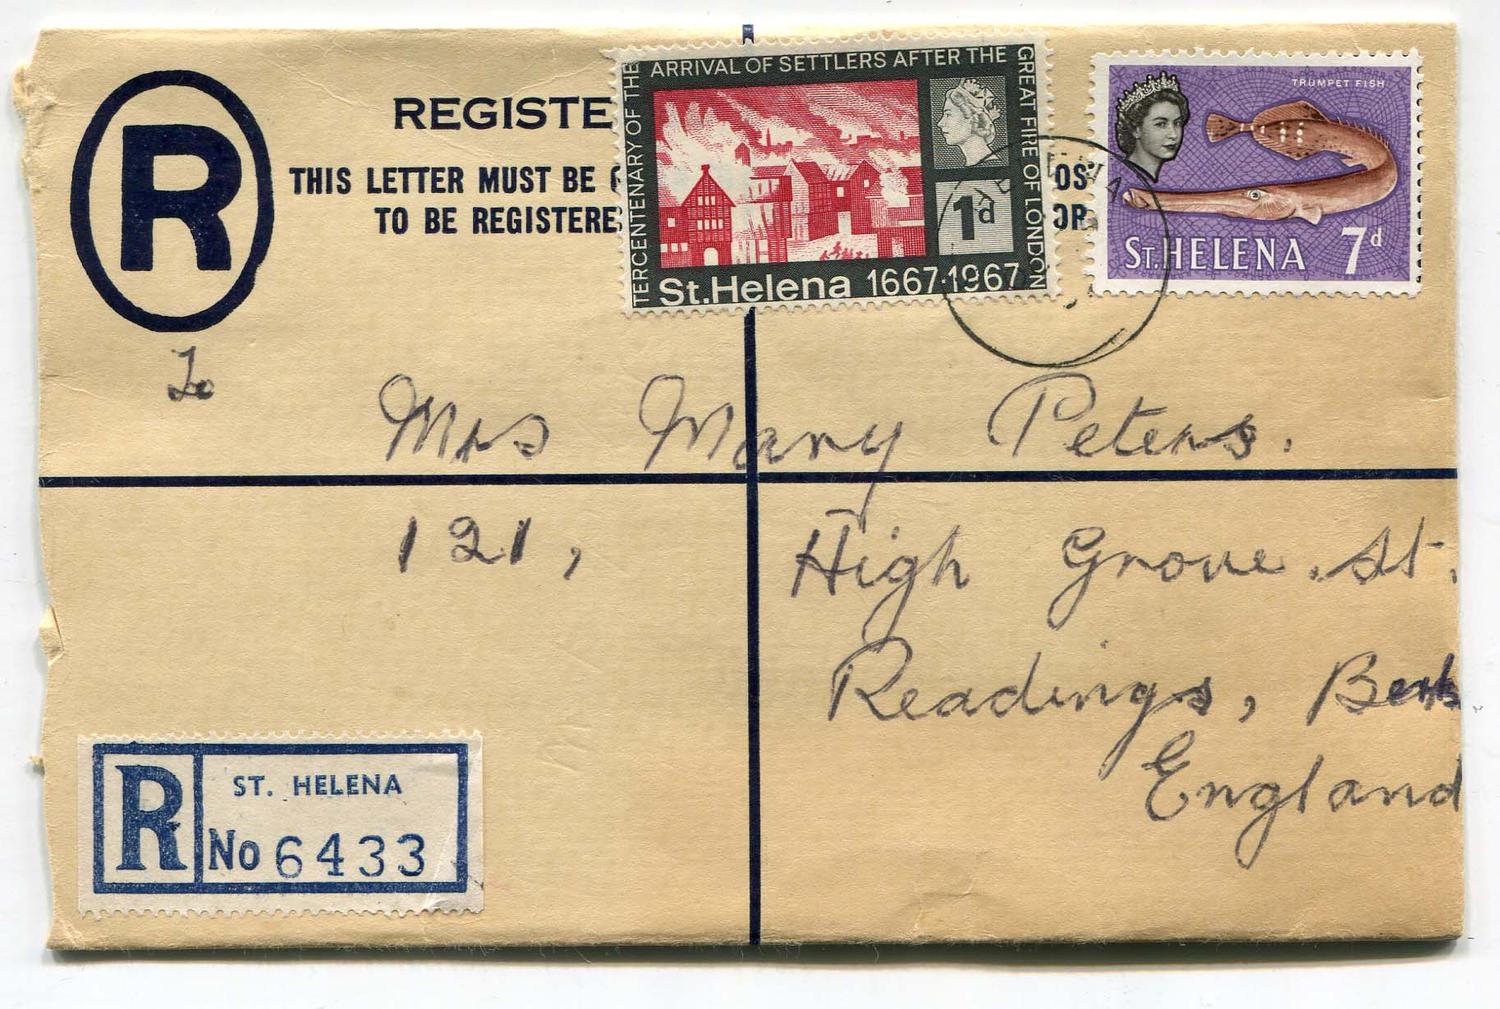 R
REGISTE
THIS LETTER MUST BE
TO BE REGISTERE
OS
OR
TERCENTENARY OF THE
ARRIVAL OF SETTLERS AFTER THE
GREAT FIRE OF LONDON
1d
St.Helena 1667-1967
TRUMPET FISH
ST. HELENA 7d
To
Mrs Mary Peters.
121, High Grove. St.
Readings, Berks
England
R ST. HELENA
No 6433